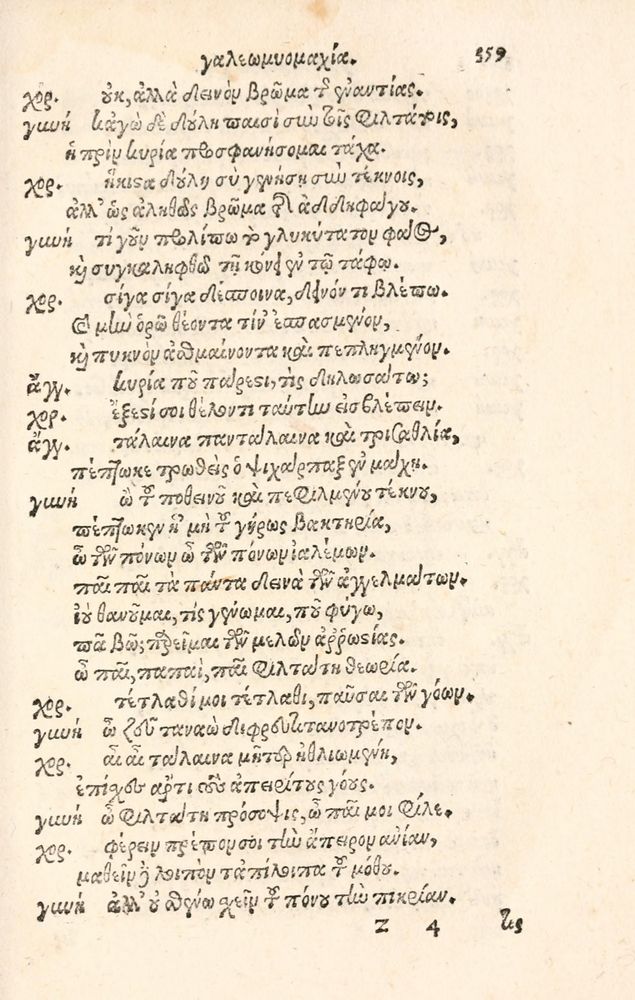 γαλεωμυομαχία. 359
χορ. ὐκ, ἀλλὰ δεινὸν βρῶμα τῆς ἐναντίας.
γυνή κἀγὼ δὲ δούλη παισὶ σὺν τοῖς φιλτάτοις,
ἡ πρὶν κυρία προσφανήσομαι τάχα.
χορ. ἥκιστα δούλη σὺ γενήσῃ σὺν τέκνοις,
ἀλλ' ὡς ἀληθῶς βρῶμα τοῦ ἀδδηφάγου.
γυνή τί γοῦν προλίπω τὸ γλυκύτατον φάος,
καὶ συγκαλυφθῶ τῇ κόνει ἐν τῷ τάφῳ.
χορ. σίγα σίγα δέσποινα, δεινόν τι βλέπω.
καὶ μὴν ὁρῶ θέοντα τίν' ἐσπασμένον,
καὶ πυκνὸν ἀσθμαίνοντα καὶ πεπληγμένον.
ἄγγ. κυρία ποῦ πάρεστι, τὶς δηλωσάτω;
χορ. ἔξεστί σοι θέλοντι ταύτην εἰσβλέπειν.
ἄγγ. τάλαινα παντάλαινα καὶ τρισαθλία,
πέπτωκε τρωθεὶς ὁ ψιχάρπαξ ἐν μάχῃ.
γυνή ὢ τοῦ ποθεινοῦ καὶ πεφιλμένου τέκνου,
πέπτωκεν ἡμῖν τοῦ γήρως βακτηρία,
ὦ τῶν πόνων ὦ τῶν πόνων ἰαλέμων.
παῖ παῖ τὰ πάντα δεινὰ τῶν ἀγγελμάτων.
ἰοὺ θανοῦμαι, τίς γένωμαι, ποῦ φύγω,
πᾶ βῶ; παρεῖμαι τῶν μελῶν ἀῤῥωστίας.
ὦ παῖ, παπαὶ, παῖ φιλτάτη θεωρία.
χορ. τέτλαθί μοι τέτλαθι, παῦσαι τῶν γόων.
γυνή ὦ ζεῦ ταναὼ διφρου κτανοτρέπον.
χορ. αἶ αἶ τάλαινα μῆτερ ἠθλιωμένη,
ἐπίχου ἄρτι τοὺς ἀπειρίτους γόους.
γυνή ὦ φιλτάτη πρόσοψις, ὦ παῖ μοι φίλε.
χορ. φέρειν πρέπον σοι τὴν ἄπειρον ἀνίαν,
μαθεῖν δὲ λοιπὸν τἀπίλοιπα τοῦ μόθου.
γυνή ἀλλ' οὐ σθένω χεῖν τοῦ πόνου τὴν πικρίαν.
Z 4 τίς